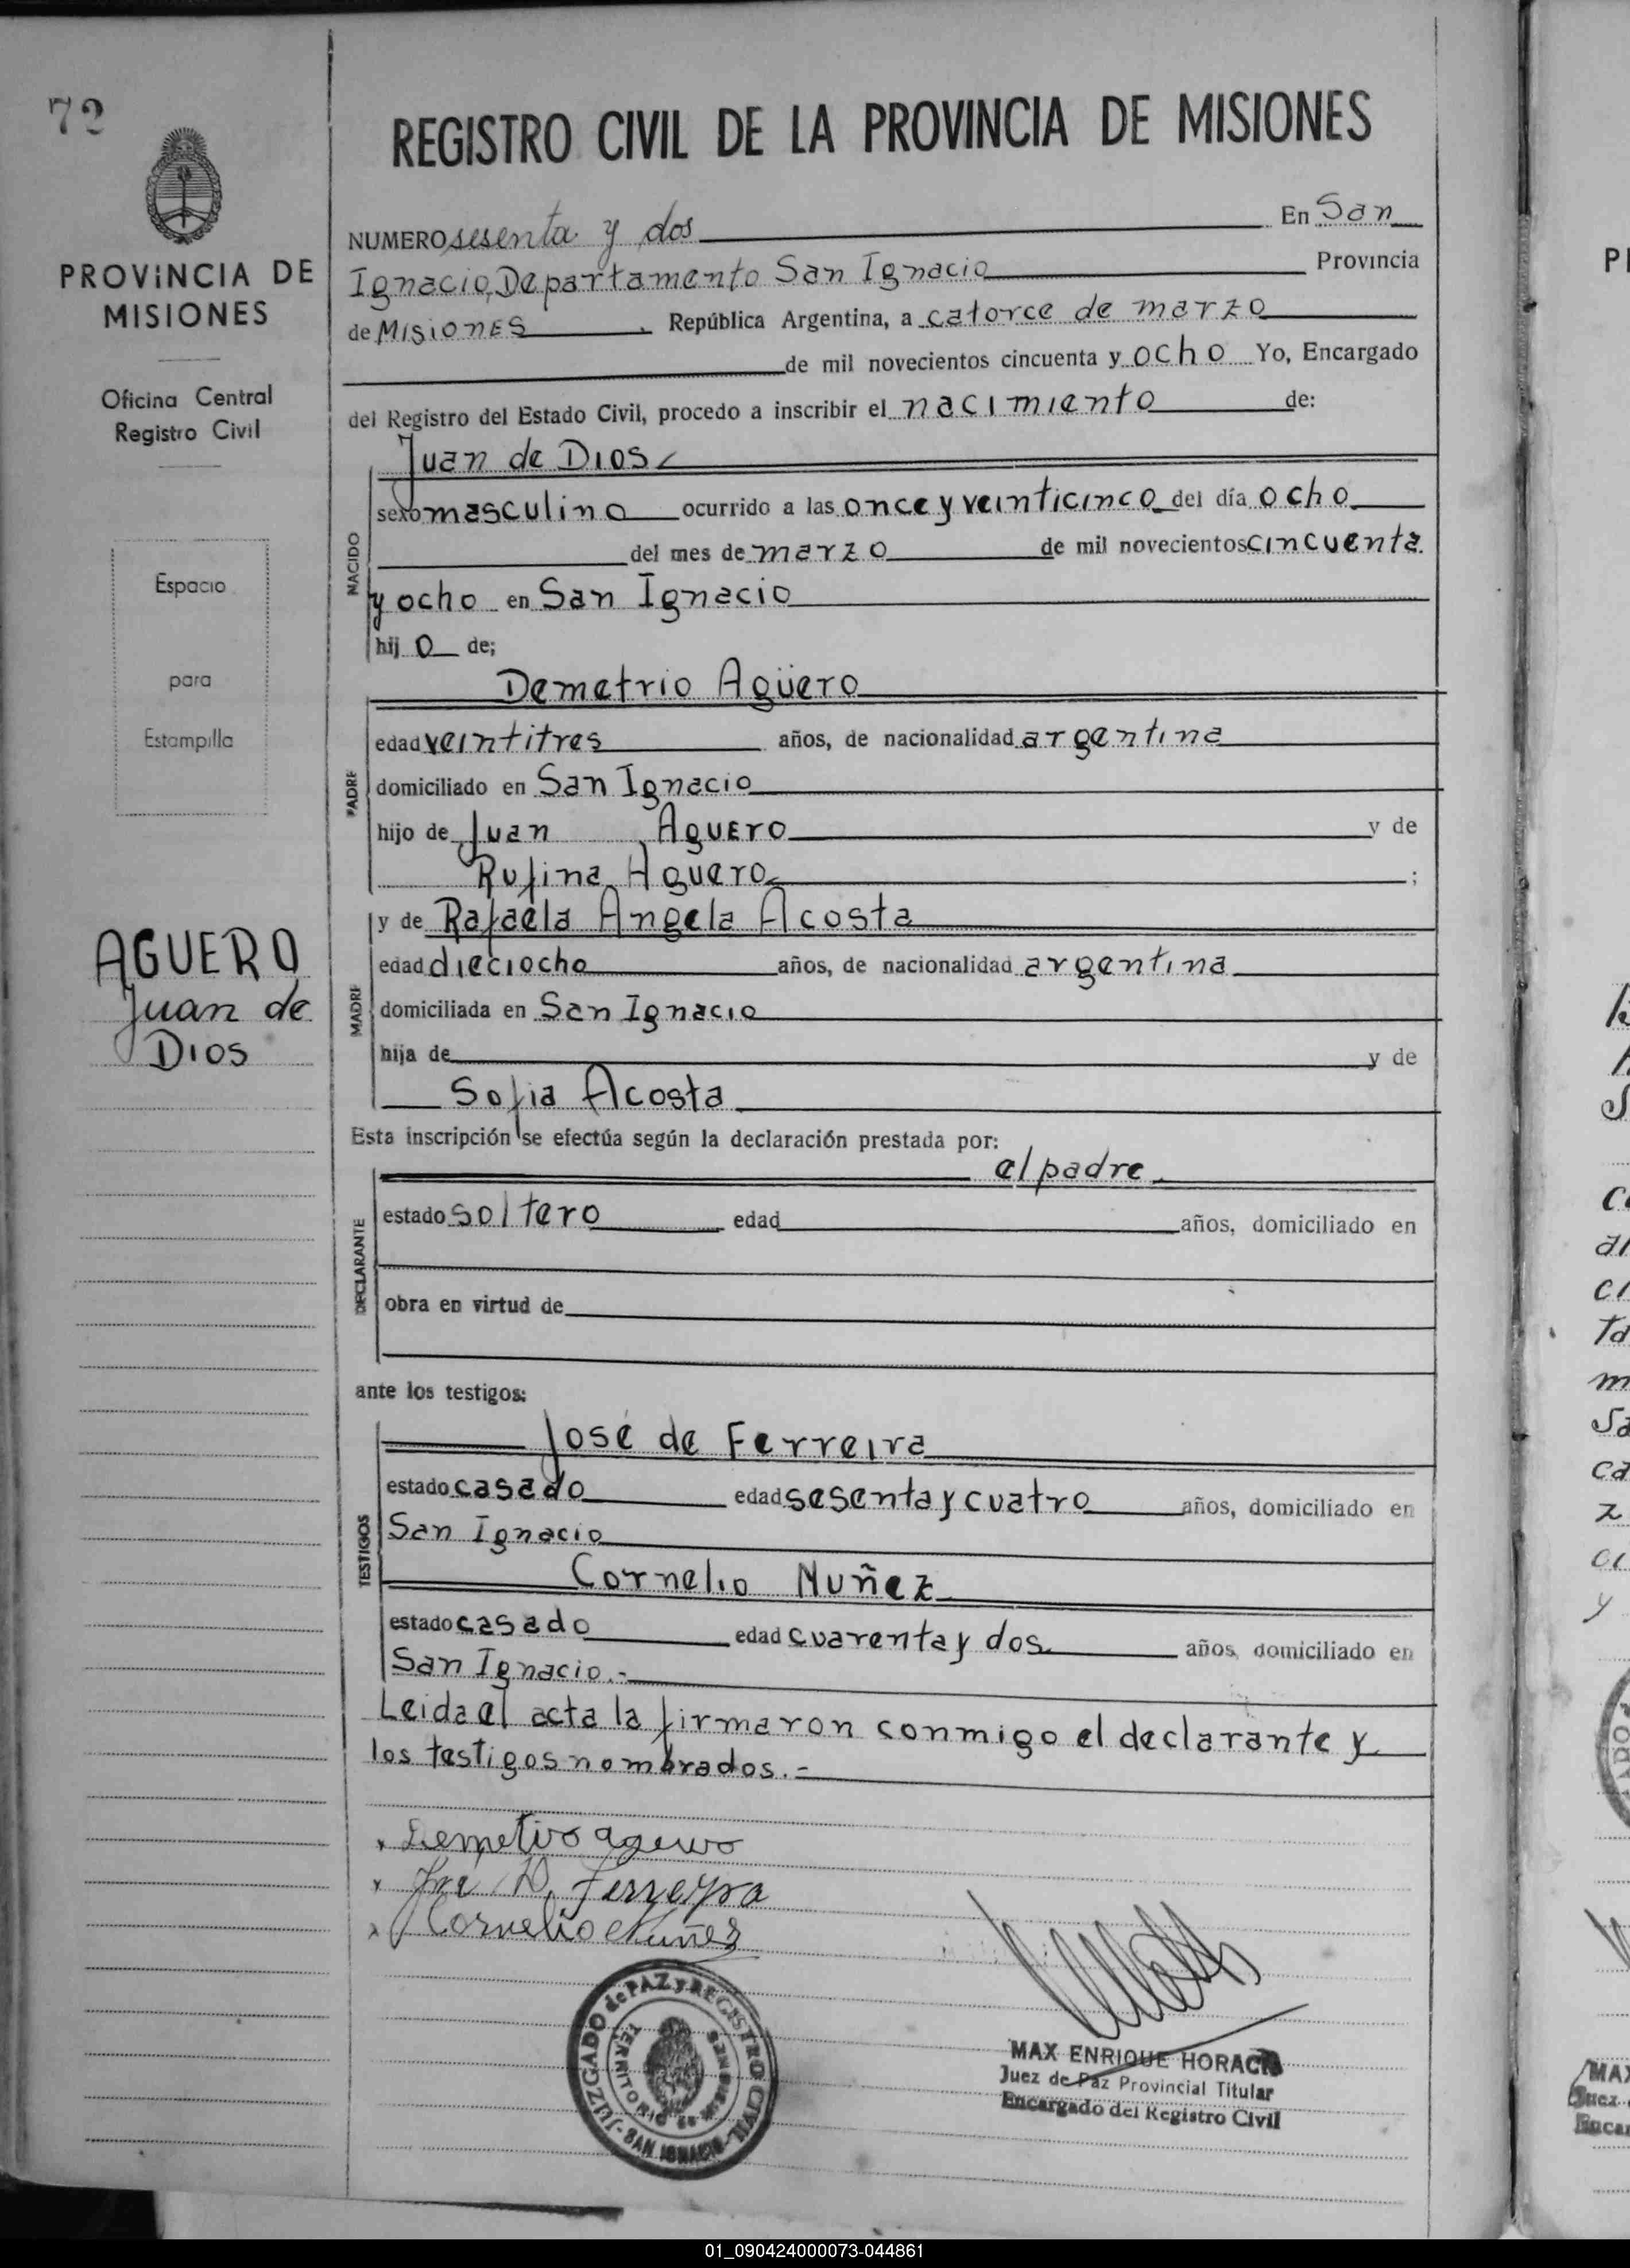 72
PROVINCIA DE
MISIONES
Oficina Central
Registro Civil
Espacio
para
Estampilla
AGUERO
Juan de
Dios
REGISTRO CIVIL DE LA PROVINCIA DE MISIONES
NUMERO sesenta y dos En San
Ignacio, Departamento San Ignacio Provincia
de Misiones República Argentina, a catorce de marzo
de mil novecientos cincuenta y ocho Yo, Encargado
del Registro del Estado Civil, procedo a inscribir el nacimiento de:
Juan de Dios
NACIDO
sexo masculino ocurrido a las once y veinticinco del día ocho
del mes de marzo de mil novecientos cincuenta
y ocho en San Ignacio
hij o de;
Demetrio Agüero
PADRE
edad veintitres años, de nacionalidad argentina
domiciliado en San Ignacio
hijo de Juan Aguero y de
Rufina Aguero ;
y de Rafaela Angela Acosta
MADRE
edad dieciocho años, de nacionalidad argentina
domiciliada en San Ignacio
hija de y de
Sofia Acosta
Esta inscripción se efectúa según la declaración prestada por:
el padre
DECLARANTE
estado soltero edad años, domiciliado en
obra en virtud de
ante los testigos:
José de Ferreira
TESTIGOS
estado casado edad sesenta y cuatro años, domiciliado en
San Ignacio
Cornelio Nuñez
estado casado edad cuarenta y dos años, domiciliado en
San Ignacio.-
Leida el acta la firmaron conmigo el declarante y
los testigos nombrados.-
José D. Ferreyra
Cornelio Nuñez
JUZGADO de PAZ y REGISTRO CIVIL
SAN IGNACIO
MAX ENRIQUE HORACIO
Juez de Paz Provincial Titular
Encargado del Registro Civil
01_090424000073-044861